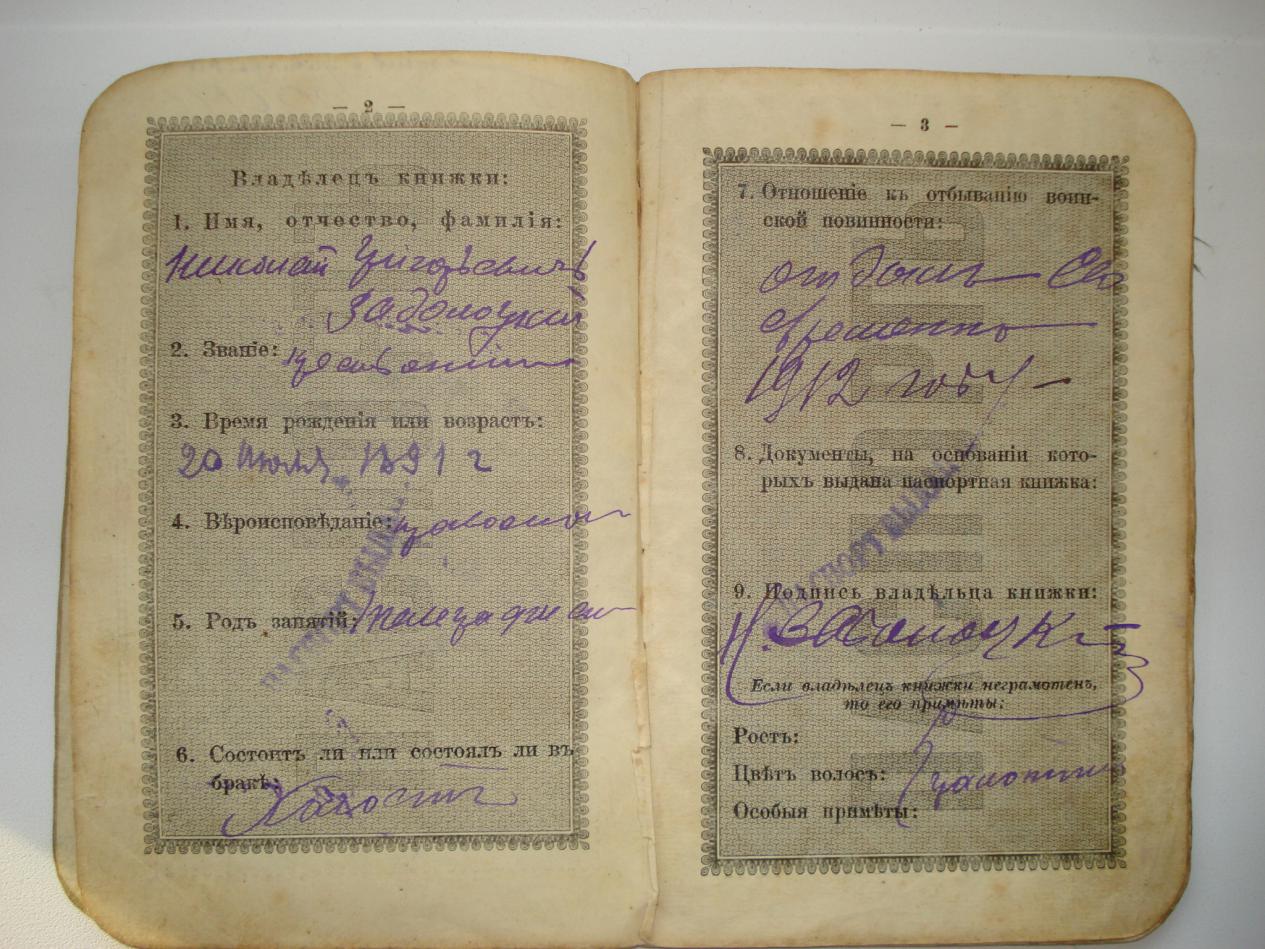 — 2 —
Владѣлецъ книжки:
1. Имя, отчество, фамилія:
Николай Григорьевичъ
Заболоцкий
2. Званіе: крестьянинъ
3. Время рожденія или возрастъ:
20 июля 1891 г
4. Вѣроисповѣданіе:
5. Родъ занятій: телеграфист
6. Состоитъ ли или состоялъ ли въ
бракѣ:
Холостъ
— 3 —
7. Отношеніе къ отбыванію воин-
ской повинности:
1912 году
8. Документы, на основаніи кото-
рыхъ выдана паспортная книжка:
ПАСПОРТ
9. Подпись владѣльца книжки:
Н. Заболоцкий
Если владѣлецъ книжки неграмотенъ,
то его примѣты:
Ростъ:
Цвѣтъ волосъ:
Особыя примѣты: